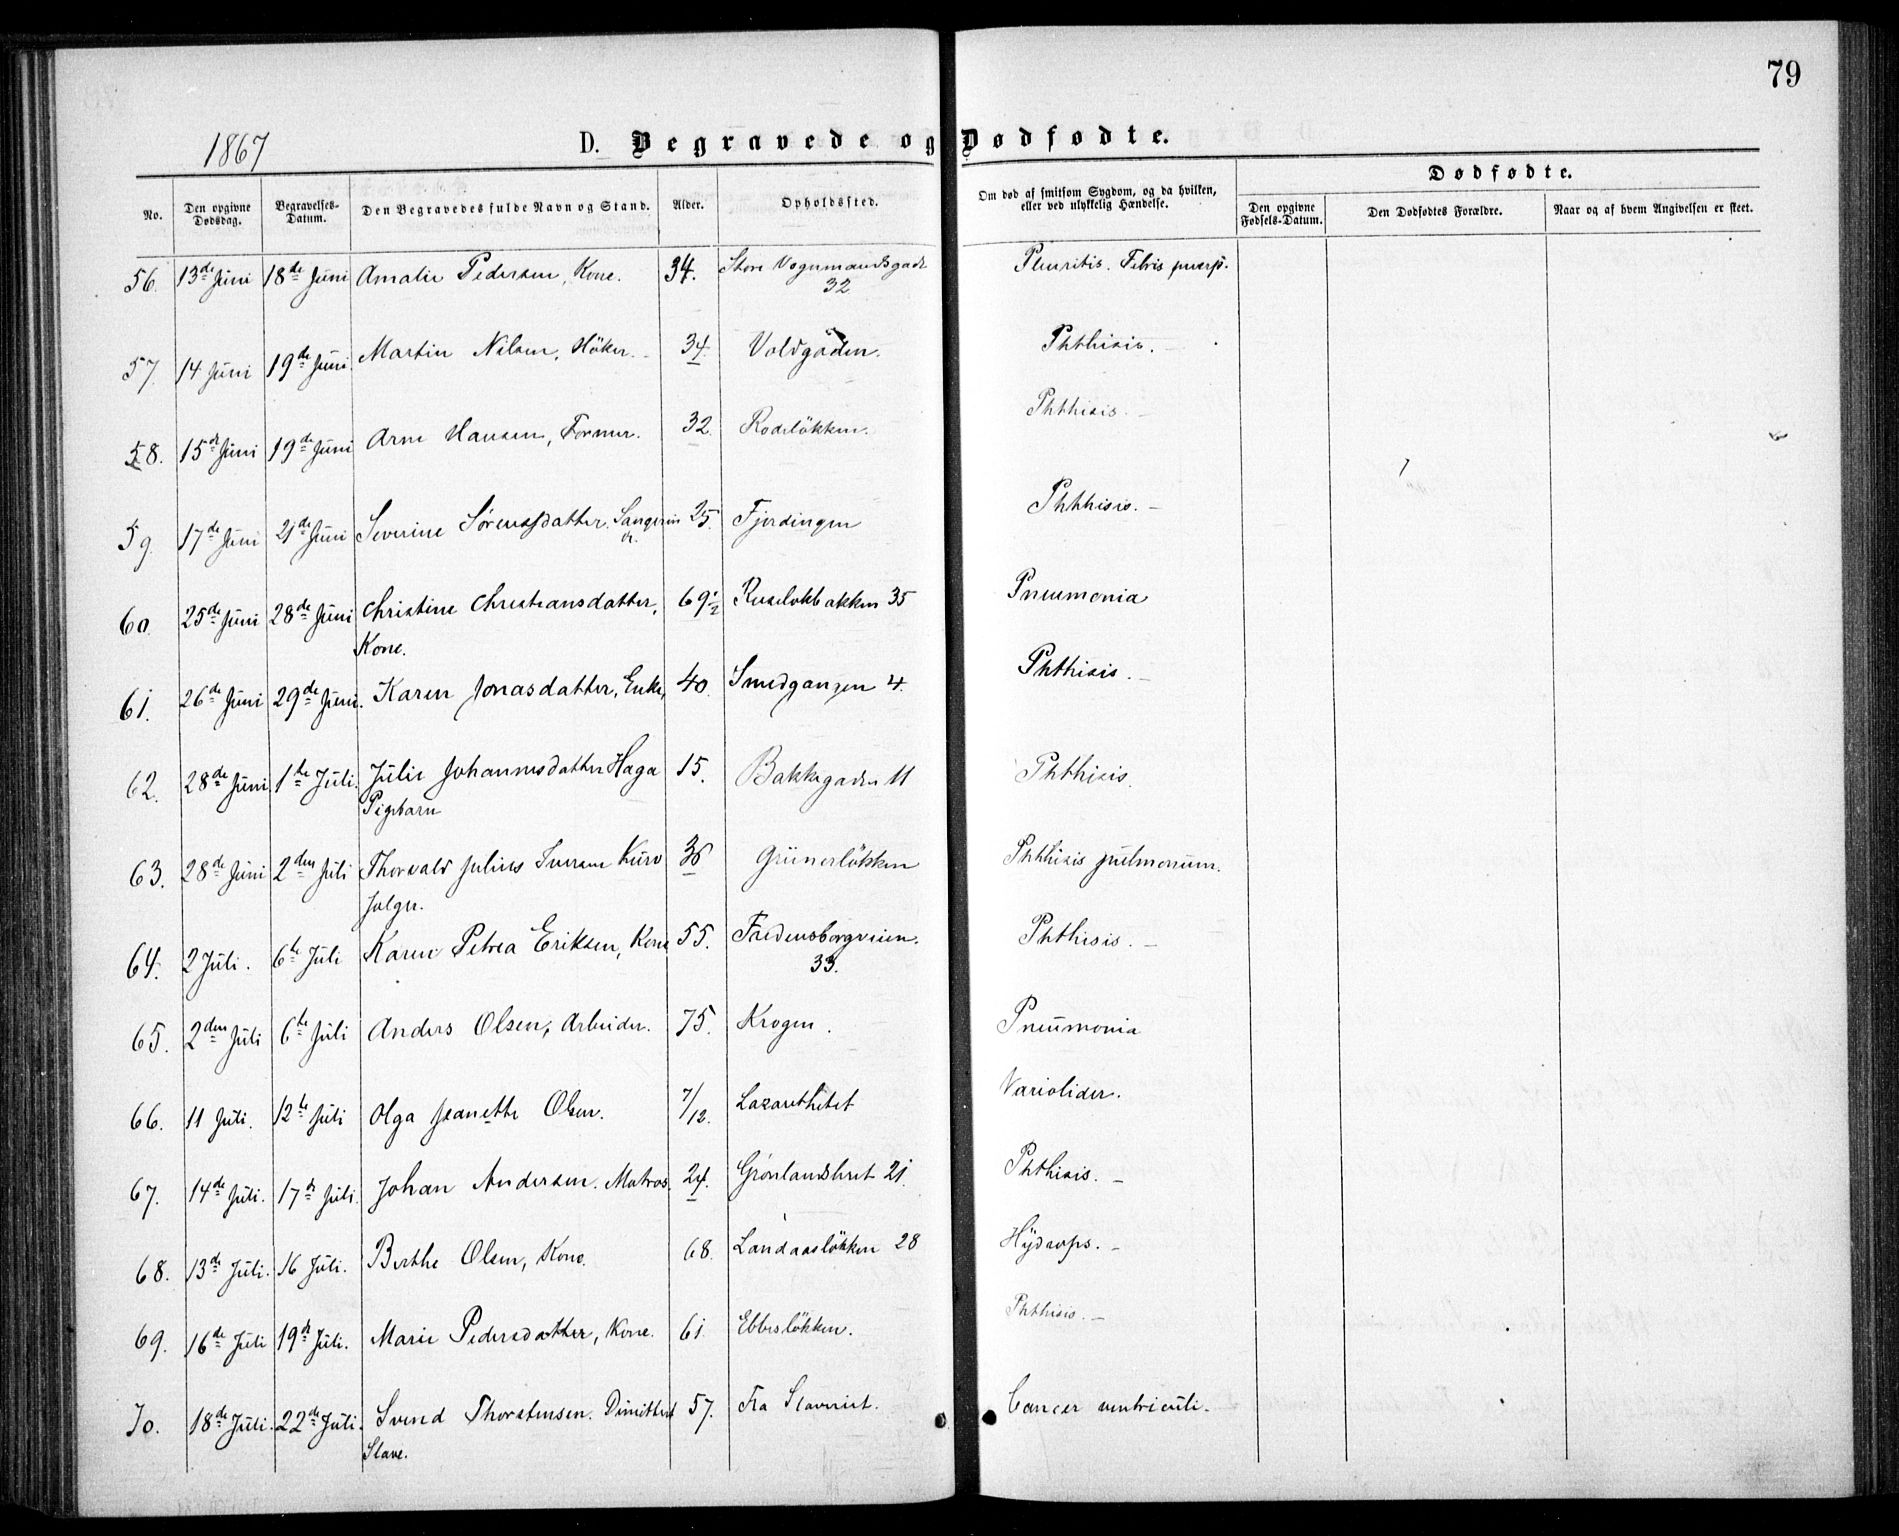 79
1867
D. Begravede og Dødfødte.
No. Den opgivne Dødsdag. Begravelses-Datum. Den Begravedes fulde Navn og Stand. Alder. Opholdssted. Om død af smitsom Sygdom, og da hvilken, eller ved ulykkelig Hændelse. Dødfødte.
Den opgivne Fødsels-Datum. Den Dødfødtes Forældre. Naar og af hvem Angivelsen er skeet.
56. 13de Juni 18de Juni Amalie Pedersen, Kone. 34. Store Vognmandsgade Pleuritis. Febris puerp.
32
57. 14 Juni 19de Juni Martin Nilsen, Höker. 34 Voldgaden. Phthisis.
58. 15de Juni 19de Juni Arne Hansen, Former. 32 Rodeløkken. Phthisis.
59. 17de Juni 21de Juni Severine Sørensdatter. 25. Fjerdingen Phthisis.
60. 25de Juni 28de Juni Christine Christiansdatter, 69½ Ruseløkbakken 35 Pneumonia
Kone.
61. 26de Juni 29de Juni. Karen Jonasdatter, Enke, 40. Smedgangen 4. Phthisis.
62. 28de Juni 1te Juli. Julie Johannesdatter Haga 15. Bakkegaden 11 Phthisis.
Pigebarn
63. 28de Juni 2den Juli Thorvald Julius Iversen Kurv 36 Grünerløkken Phthisis pulmonum.
64. 2 Juli. 6te Juli Karen Petrea Eriksen, Kone 55. Fredensborgveien. Phthisis.
33.
65. 2den Juli 6te Juli Anders Olsen, Arbeider. 75. Krogen. Pneumonia
66. 11 Juli. 12te Juli Olga Jeanette Olsen. 7/12. Lazarethetet Variolider.
67. 14de Juli. 17de Juli. Johan Andersen. Matros. 24. Grønlandsleret 21. Phthisis.
68. 13de Juli. 16 Juli. Berthe Olsen, Kone. 68. Landaasløkken 28 Hydrops.
69. 16de Juli 19de Juli. Marie Pedersdatter, Kone. 61. Ebbesløkken. Phthisis.
70. 18de Juli. 22de Juli. Svend Thorstensen. Dimitteret 57. Fra Slaveriet. Cancer ventriculi.
Slave.